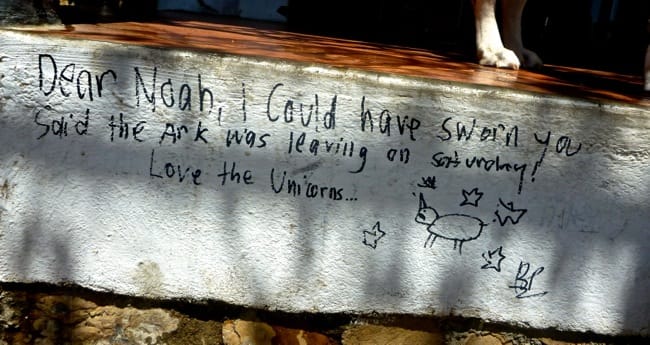 Dear Noah, i Could have sworn you
Said the Ark was leaving on saturday!
Love the Unicorns...
BP